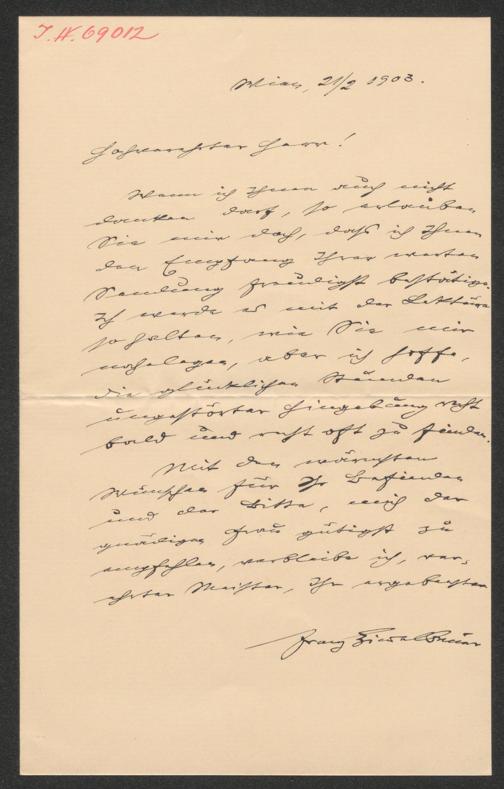 J.N. 69012
Wien, 21/2 1903.
Hochverehrter Herr!
Wenn ich Ihnen auch nicht
danken darf, so erlauben
Sie mir doch, daß ich Ihnen
den Empfang Ihrer werten
Sendung freudigst bestätige.
Ich werde es mit der Lektüre
so halten, wie Sie mir
nahelegen, aber ich hoffe,
die glücklichen Stunden
ungestörter Hingebung recht
bald und recht oft zu finden.
Mit den wärmsten
Wünschen für Ihr Befinden
und der Bitte, mich der
gnädigen Frau gütigst zu
empfehlen, verbleibe ich, ver-
ehrter Meister, Ihr ergebenster
Franz